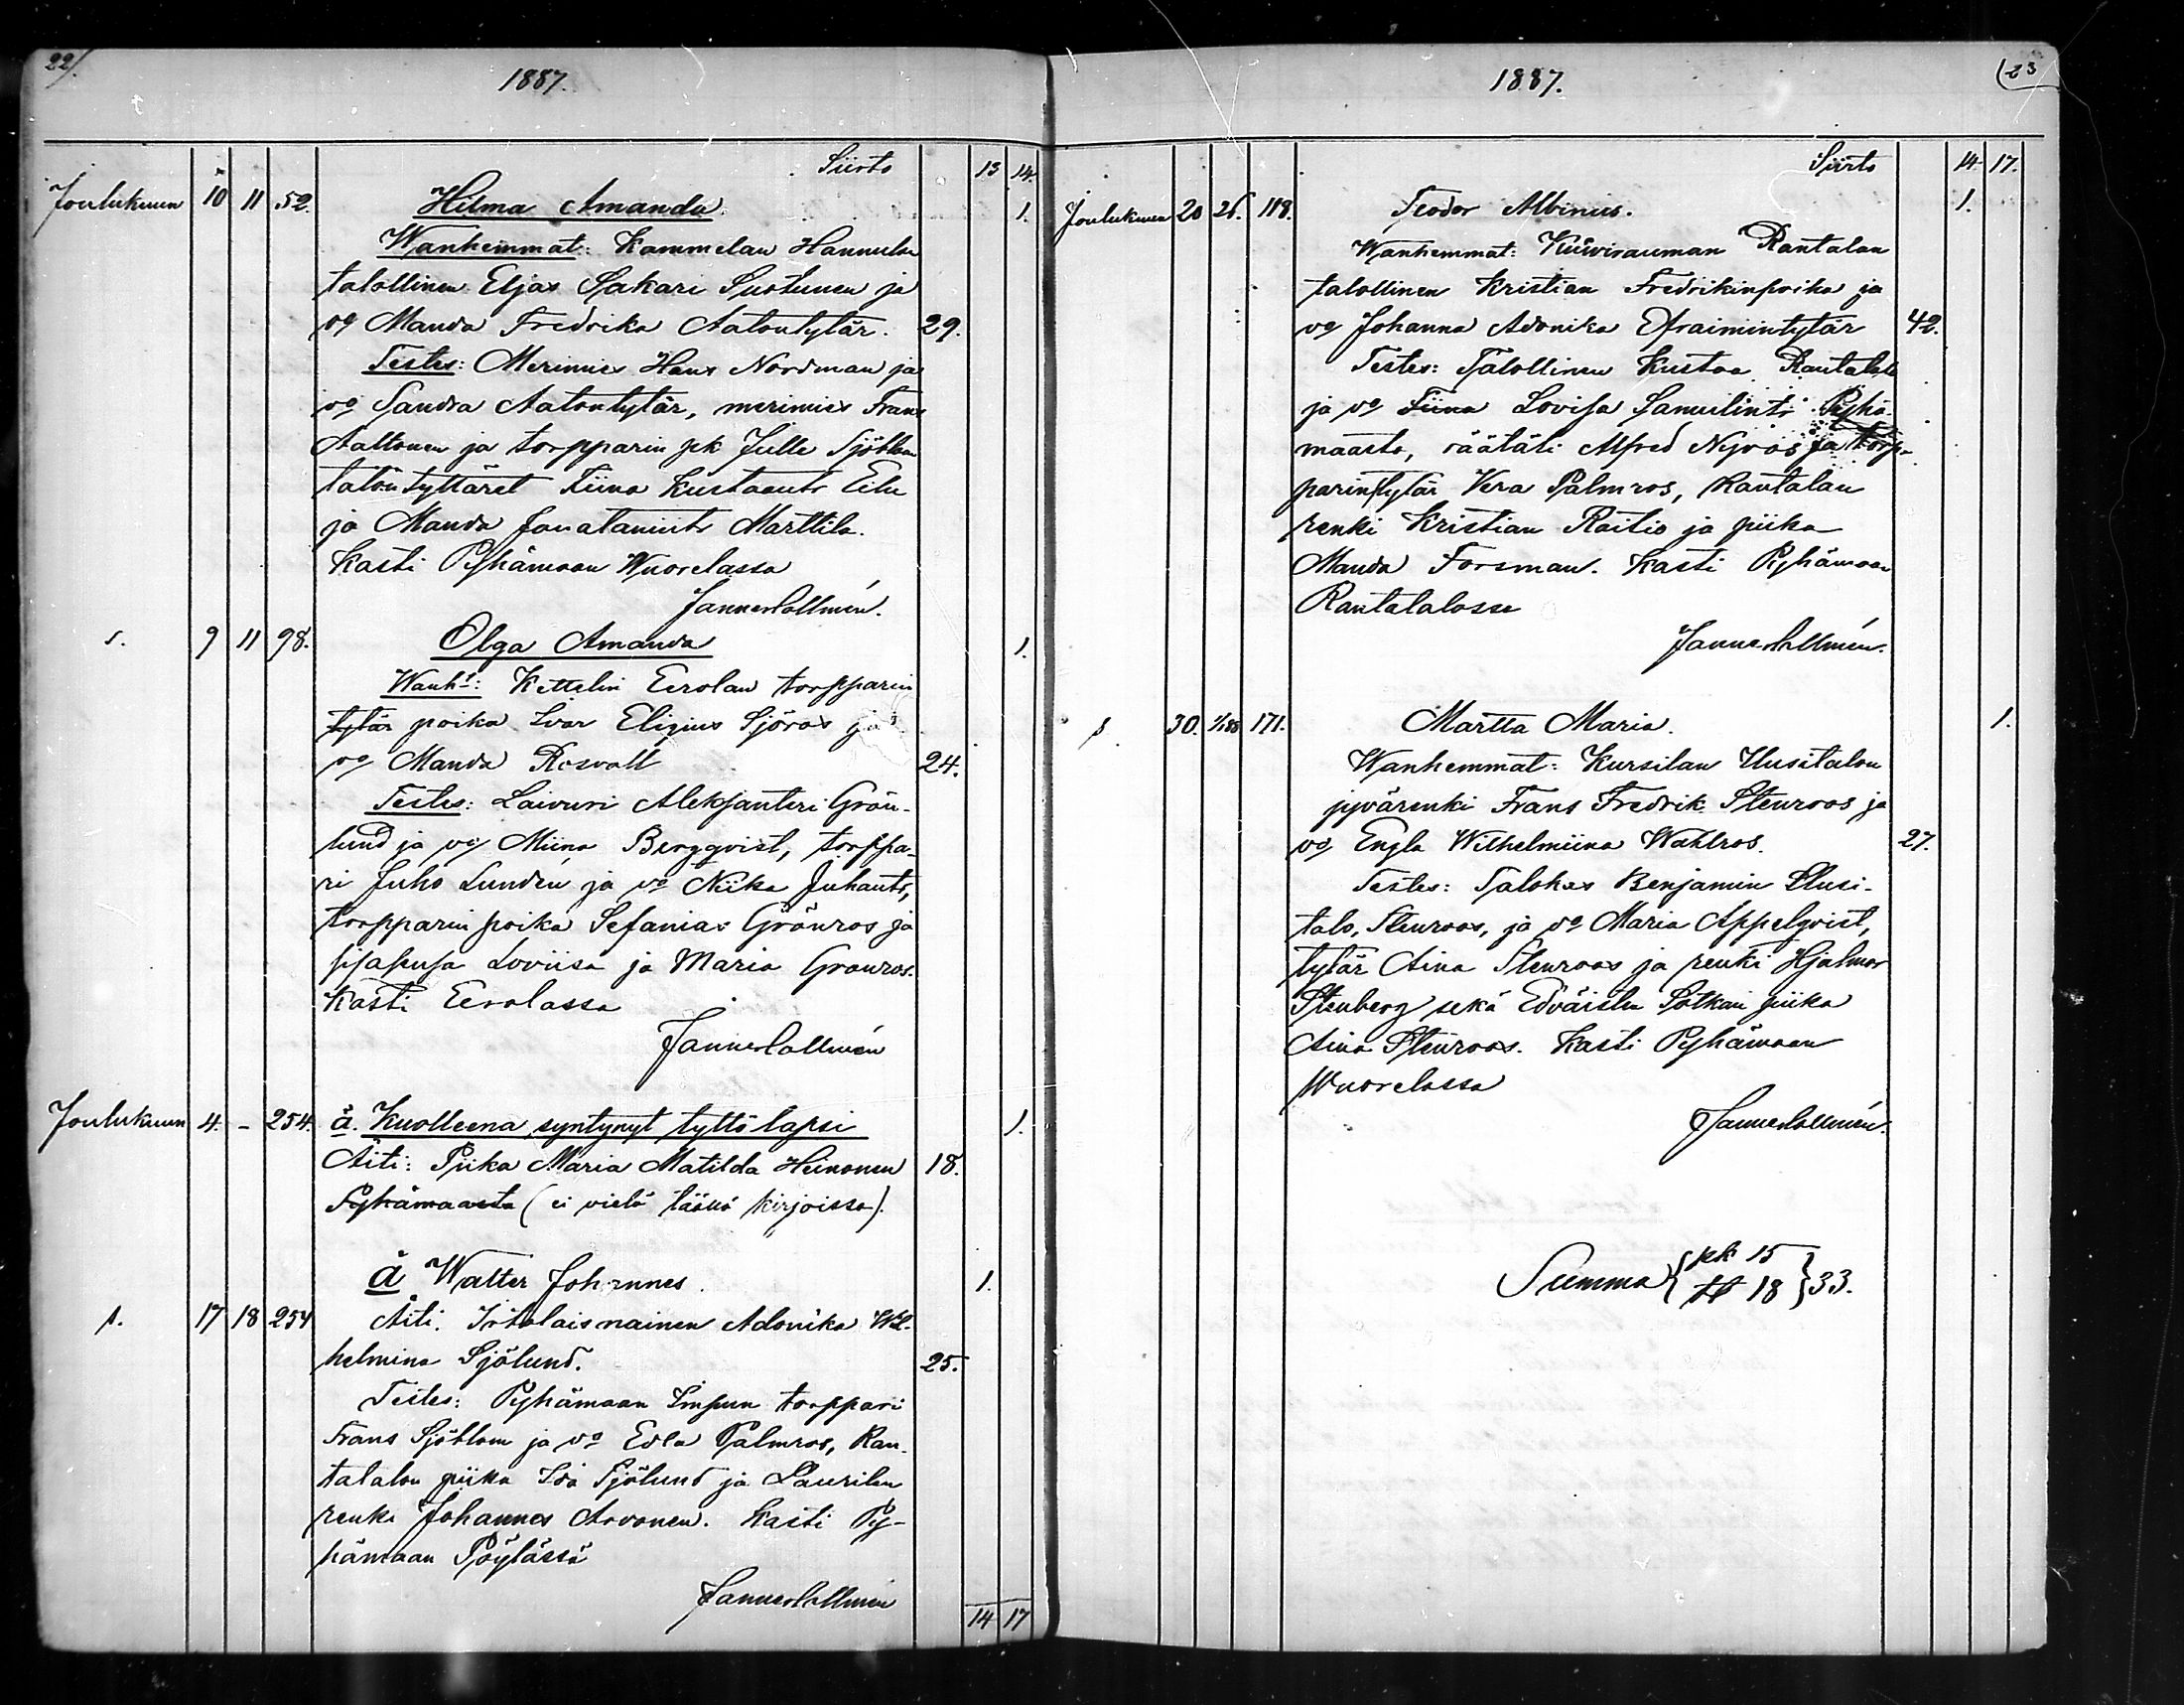 22.
1887.
Siirto 13 14.
Joulukuun 10 11 52. Hilma Amanda. 1.
Wanhemmat: Kammelan Hannulan
talollinen Eljas Sakari Suotunen ja
vo Manda Fredrika Aatontytär. 29.
Testes: Merimies Hans Nordman ja
vo Sandra Aatontytär, merimies Frans
Aaltonen ja torpparin pk Julle Sjöblom
talontyttäret Tiina Kustaants Eilu
ja Manda Jonatanints Marttila.
Kasti Pyhämaan Wuorelassa
Janne Collmén.
s. 9 11 98. Olga Amanda 1.
Wanht: Kettelin Eerolan torpparin
tytär poika Ivar Eligius Sjöros ja
vo Manda Rosvall 24.
Testes: Laivuri Aleksanteri Grön-
lund ja vo Miina Bergqvist, torppa-
ri Juho Lundén ja vo Niika Juhants,
torpparin poika Sefanias Grönros ja
Loviisa ja Maria Gronros.
Kasti Eerolassa
Janne Collmén
Joulukuun 4. - 254. ä. Kuolleena syntynyt tyttölapsi 1.
Äiti: Piika Maria Matilda Heinonen 18.
Pyhämaasta (ei vielä täällä kirjoissa).
ä Walter Johannes. 1.
s. 17 18 254 Äiti. Irtolaisnainen Adonika Wil-
helmina Sjölund. 25.
Testes: Pyhämaan Impun torppari
Frans Sjöblom ja vo Edla Palmros, Ran-
talalon piika Ida Sjölund ja Laurilan
renki Johannes Arvonen. Kasti Py-
hämaan Pöylässä
Janne Collmén
14 17
23
1887.
Siirto 14 17.
Joulukuun 20 26. 118. Teodor Albinus. 1.
Wanhemmat: Kuivirauman Rantalan
talollinen Kristian Fredrikinpoika ja
vo Johanna Adonika Efraimintytär 42.
Testes: Talollinen Kustaa Rantalalo
ja vo Tiina Lovisa Samulints Pyhä-
maasta, räätäli Alfred Nyros ja torp-
parintytär Vera Palmros, Rantalan
renki Kristian Raitio ja piika
Manda Forsman. Kasti Pyhämaan
Rantatalossa
Janne Collmén.
s. 30. 1/1 88 171. Martta Maria. 1.
Wanhemmat: Kursilan Uusitalon
pyvärenki Frans Fredrik Stenroos ja
vo Engla Wilhelmiina Wahlros. 27.
Testes: Talokas Benjamin Uusi-
talo, Stenroos, ja vo Maria Appelqvist,
tytär Aina Stenroos ja renki Hjalmar
Stenberg sekä Edväisten Sotkan piika
Aina Stenroos. Kasti Pyhämaan
Wuorelassa
Janne Collmén.
Summa { pk 15
tt 18 } 33.